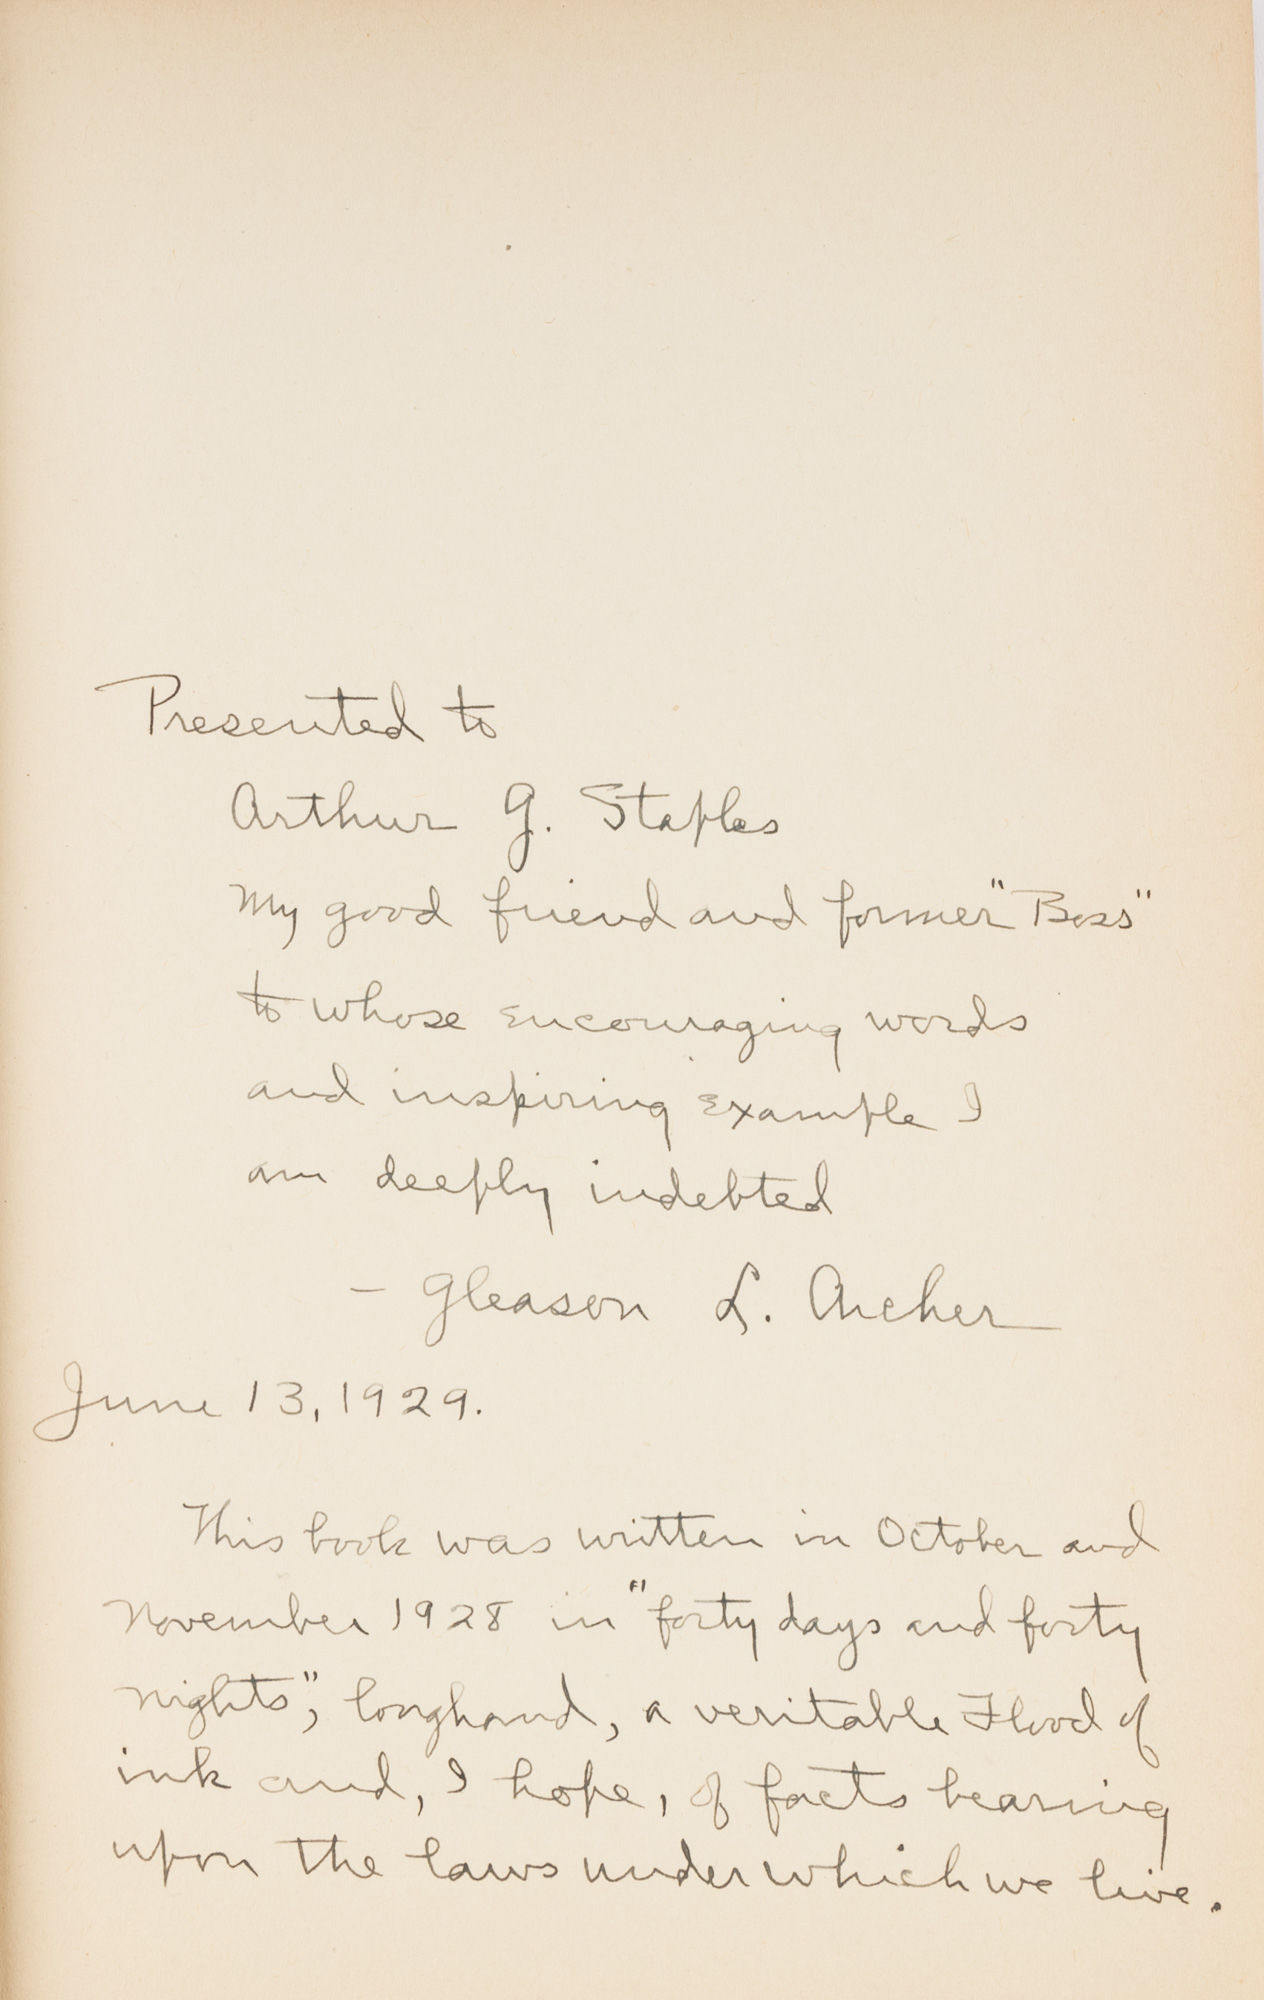 Presented to
Arthur G. Staples
My good friend and former "Boss"
to whose encouraging words
and inspiring example I
am deeply indebted
- Gleason L. Archer
June 13, 1929.
This book was written in October and
November 1928 in "forty days and forty
nights", longhand, a veritable Flood of
ink and, I hope, of facts bearing
upon the laws under which we live.